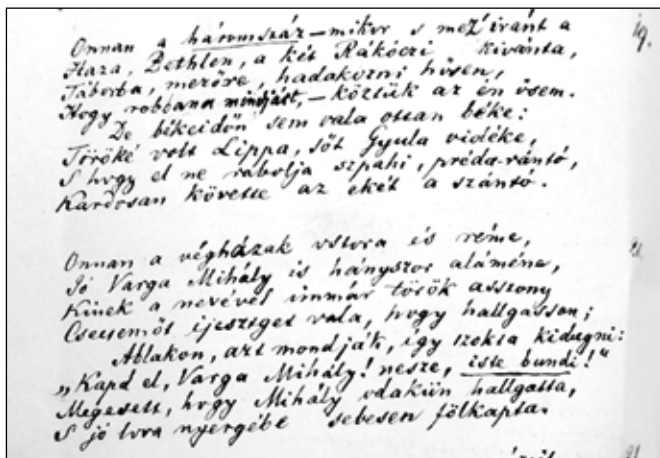 Onnan a háromszáz – mikor s mez' iránt a
Haza, Bethlen, a két Rákóczi kivánta,
Táborba, mezőre, hadakozni hősen,
Hogy robbana mindjárt, – köztük az én ősem.
De békeidőn sem vala ottan béke:
Töröké volt Lippa, sőt Gyula vidéke,
S hogy el ne rabolja szpahi, préda-rántó,
Kardosan követte az ekét a szántó.
19.
Onnan a végházak ostora és réme,
Jó Varga Mihály is hányszor aláméne,
Kinek a nevével immár török asszony
Csecsemőt ijesztget vala, hogy hallgasson;
Ablakon, azt mondják, így szokta kidugni:
„Kapd el, Varga Mihály! nesze, iste bundi!"
Megesett, hogy Mihály odakün hallgatta,
S jó lova nyergébe sebesen fölkapta.
20.
21.